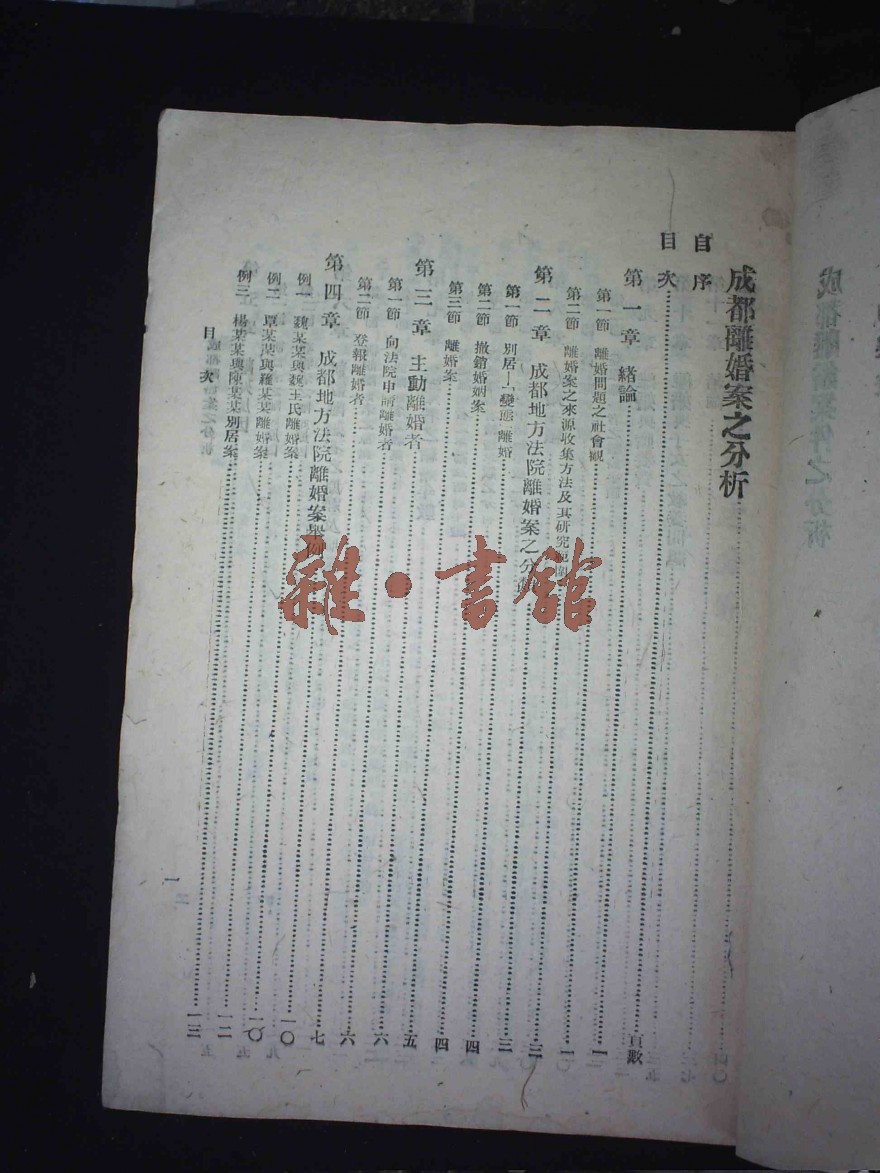 成都離婚案之分析
自序
目次
頁數
第一章 緒論 一
第一節 離婚問題之社會觀 一
第二節 離婚案之來源收集方法及其研究 三
第二章 成都地方法院離婚案之分 三
第一節 別居—「變態」離婚 四
第二節 撤銷婚姻案 四
第三節 離婚案 五
第三章 主動離婚者 六
第一節 向法院申請離婚者 六
第二節 登報離婚者 七
第四章 成都地方法院離婚案舉例 一〇
例一 魏某某與魏王氏離婚案 一〇
例二 覃某某與羅某某離婚案 一二
例三 楊某某與陳某某別居案 一三
目次
一
雜·書館